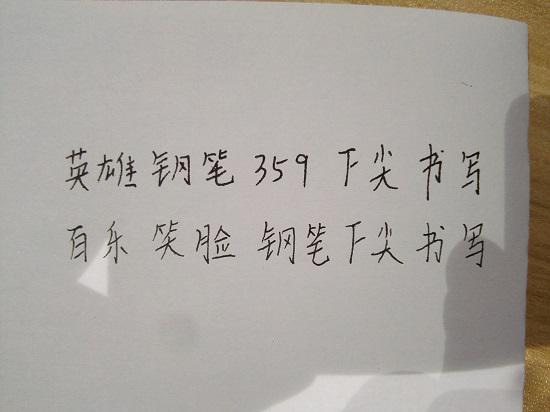 英雄 钢笔 359 下尖 书写
百乐 笑脸 钢笔下尖 书写